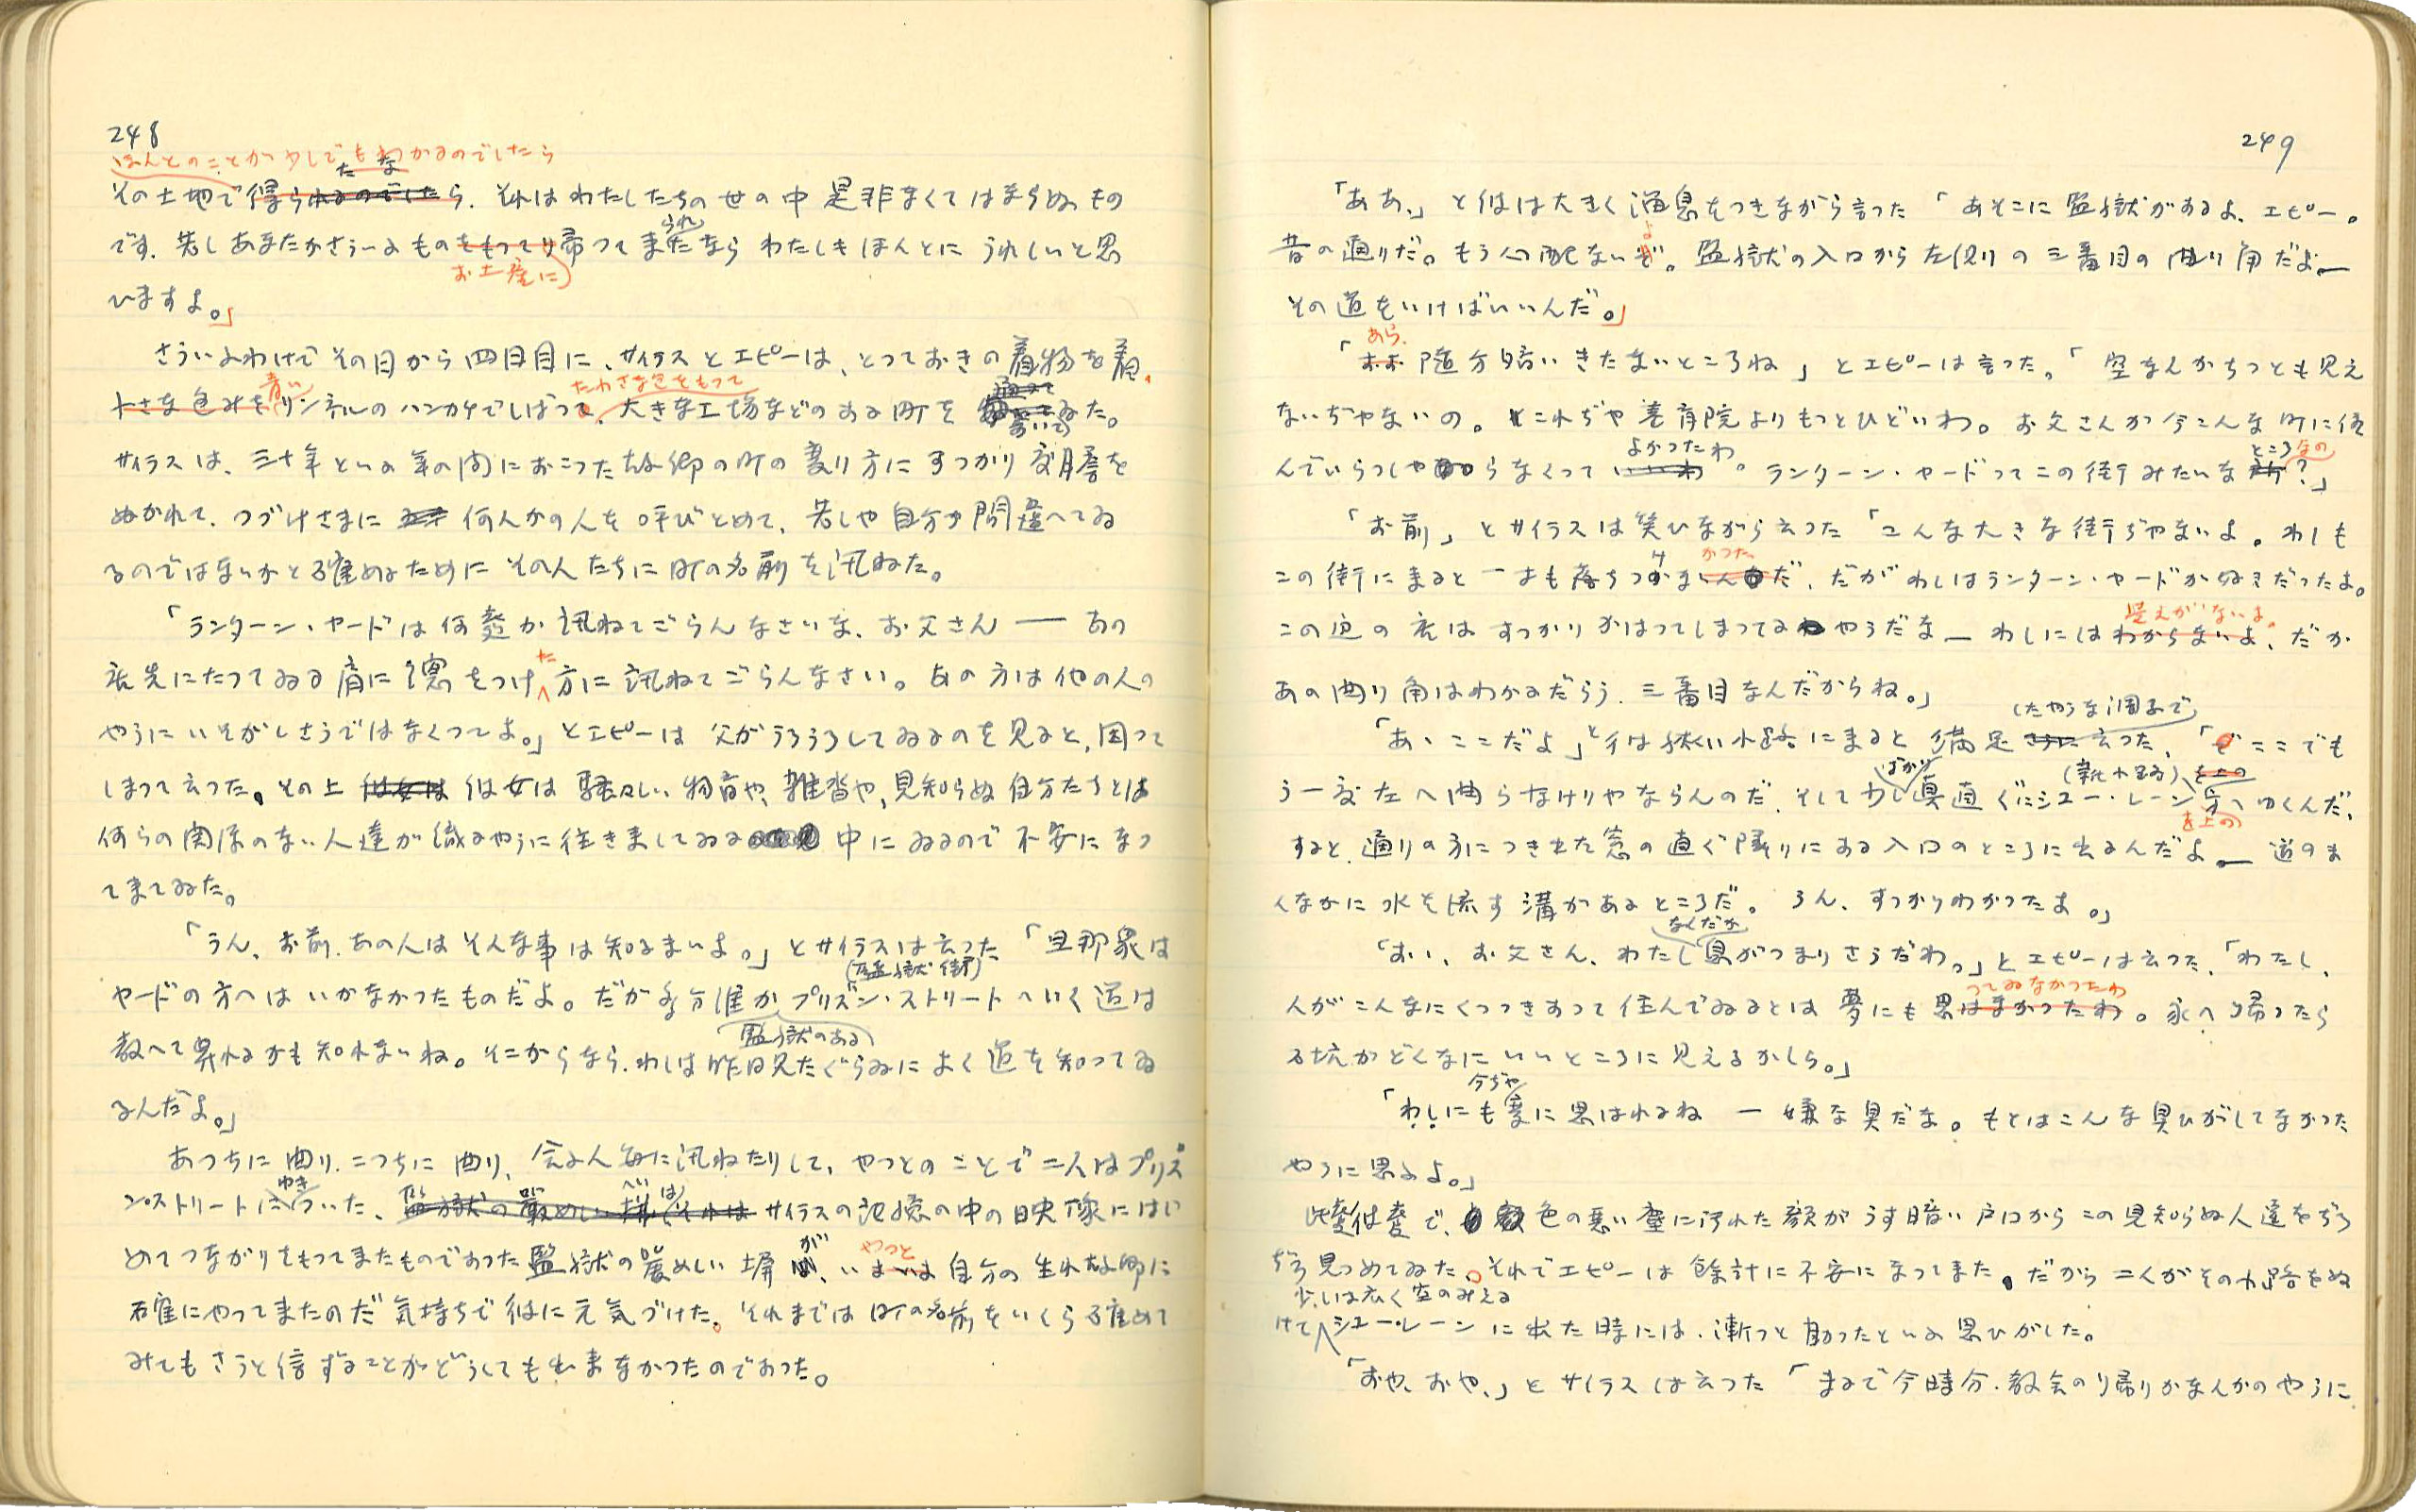 248
ほんとのことが少しでもわかるのでしたら
その土地で得られたなら、それはわたしたちの世の中是非なくてはならぬもの
です。若しあなたがさういふものをもつてり帰つて来られたなら わたしもほんとに うれしいと思
お土産に
ひますよ。」
さういふわけで その日から四日目に、サイラスとエピーは、とつておきの着物を着、
青い たわさな包をもつて
小さな包みをリンネルのハンカチでしばつて、大きな工場などのある町を 歩いてゐた。
サイラスは、三十年といふ年の間におこつた故郷の町の変り方にすつかり度膽を
ぬかれて、つづけさまに 何人かの人を呼びとめて、若しや自分が間違へてゐ
るのではないかと確めるために その人たちに町の名前を訊ねた。
「ランターン・ヤードは何處か訊ねてごらんなさいな、お父さん ― あの
店先にたつてゐる肩に總をつけた方に訊ねてごらんなさい。あの方は他の人の
やうにいそがしさうではなくつてよ。」とエピーは 父がうろうろしてゐるのを見ると、困つて
しまつて云つた。その上 彼女は 騒々しい物音や、雑沓や、見知らぬ自分たちとは
何らの関係のない人達が織るやうに往き来してゐる中にゐるので不安になつ
て来てゐた。
「うん、お前、あの人はそんな事は知るまいよ。」とサイラスは云つた 「旦那衆は
(監獄街)
ヤードの方へは いかなかつたものだよ。だが多分誰か プリズン・ストリートへいく道は
監獄のある
教へて呉れるかも知れまいね。そこからなら、わしは昨日見たぐらゐによく道を知つてゐ
るんだよ。」
あつちに曲り、こつちに曲り、会ふ人毎に訊ねたりして、やつとのことで二人はプリズ
ゆき
ン・ストリートについた、監獄の嚴めしい塀はそれは サイラスの記憶の中の映像にはじ
めてつながりをもつてきたものであつた監獄の嚴めしい塀が、やつと 自分の生れ故郷に
確にやつてきたのだ気持ちで彼に元気づけた。それまでは町の名前をいくら確めて
みてもさうと信ずることがどうしても出来なかつたのであつた。
249
「ああ、」と彼は大きく溜息をつきながら言つた 「あそこに監獄があるよ、エピー。
昔の通りだ。もう心配ないよ。監獄の入口から左側の三番目の曲り角だよ―
その道をいけばいいんだ。」
あら、
「おお 随分暗い きたないところね」とエピーは言つた。「空なんかちつとも見え
ないぢやないの。これぢや養育院よりもつとひどいわ。お父さんが今こんな町に住
よかつたわ ところなの
んでいらつしやらなくつていいわ。ランターン・ヤードつてこの街みたいな所?」
「お前」とサイラスは笑ひながら云つた 「こんな大きな街ぢやないよ。わしも
け かつた
この街にきると一寸も落ちつかないんだ、だがわしはランターン・ヤードが好きだつたよ。
覚えがないよ。
この辺の店はすつかりかはつてしまつてるやうだな― わしにはわからないよ、だが
あの曲り角はわかるだらう、三番目なんだからね。」
(たやうな調子で
「あゝここだよ」と彼は狭い小路にきると 満足さうに云つた、「ここでも
ばかり (新小路) を上の
う一度左へ曲らなけりやならんのだ、そして少し真直ぐにシュー・レーン方へゆくんだ、
を上の
すると、通りの方につき出た窓の直ぐ隣りにある入口のところに出るんだよ― 道のま
んなかに水を流す溝があるところだ。うん、すつかりわかつたよ。」
なんだか
「おゝ、お父さん、わたし息がつまりさうだわ。」とエピーは云つた、「わたし、
つてゐなかつたわ
人がこんなにくつつきあつて住んでゐるとは夢にも思はなかつたわ。家へ帰つたら
石坑がどんなにいいところに見えるかしら。」
今ぢや
「わしにも変に思はれるね ― 嫌な臭だな。もとはこんな臭ひがしてなかつた
やうに思ふよ。」
此處彼處で、色の悪い塵に汚れた顔がうす暗い戸口からこの見知らぬ人達をぢろ
ぢろ見つめてゐた。それでエピーは餘計に不安になつてきた。だから二人がその小路をぬ
少しは広く空のみえる
けてシュー・レーンに出た時には、漸つと助つたといふ思ひがした。
「おや、おや、」とサイラスは云つた 「まるで今時分、教会の帰りかなんかのやうに